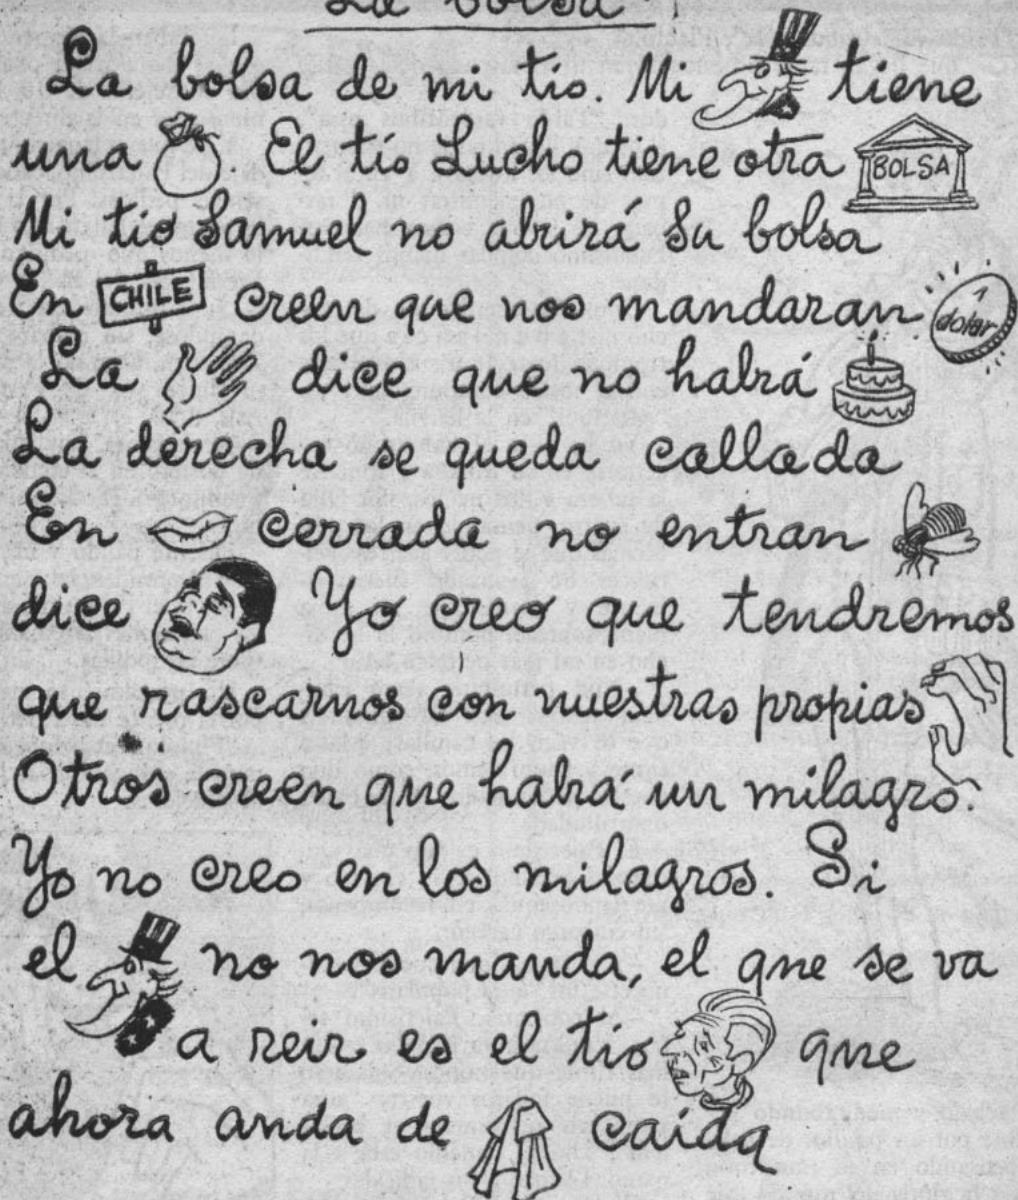 La bolsa
La bolsa de mi tio. Mi tiene
una . El tío Lucho tiene otra BOLSA
Mi tio Samuel no abrirá su bolsa
En CHILE creen que nos mandaran 1 dolar
La dice que no habrá
La derecha se queda callada
En cerrada no entran
dice Yo creo que tendremos
que rascarnos con nuestras propias
Otros creen que habrá un milagro.
Yo no creo en los milagros. Si
el no nos manda, el que se va
a reir es el tío que
ahora anda de caida